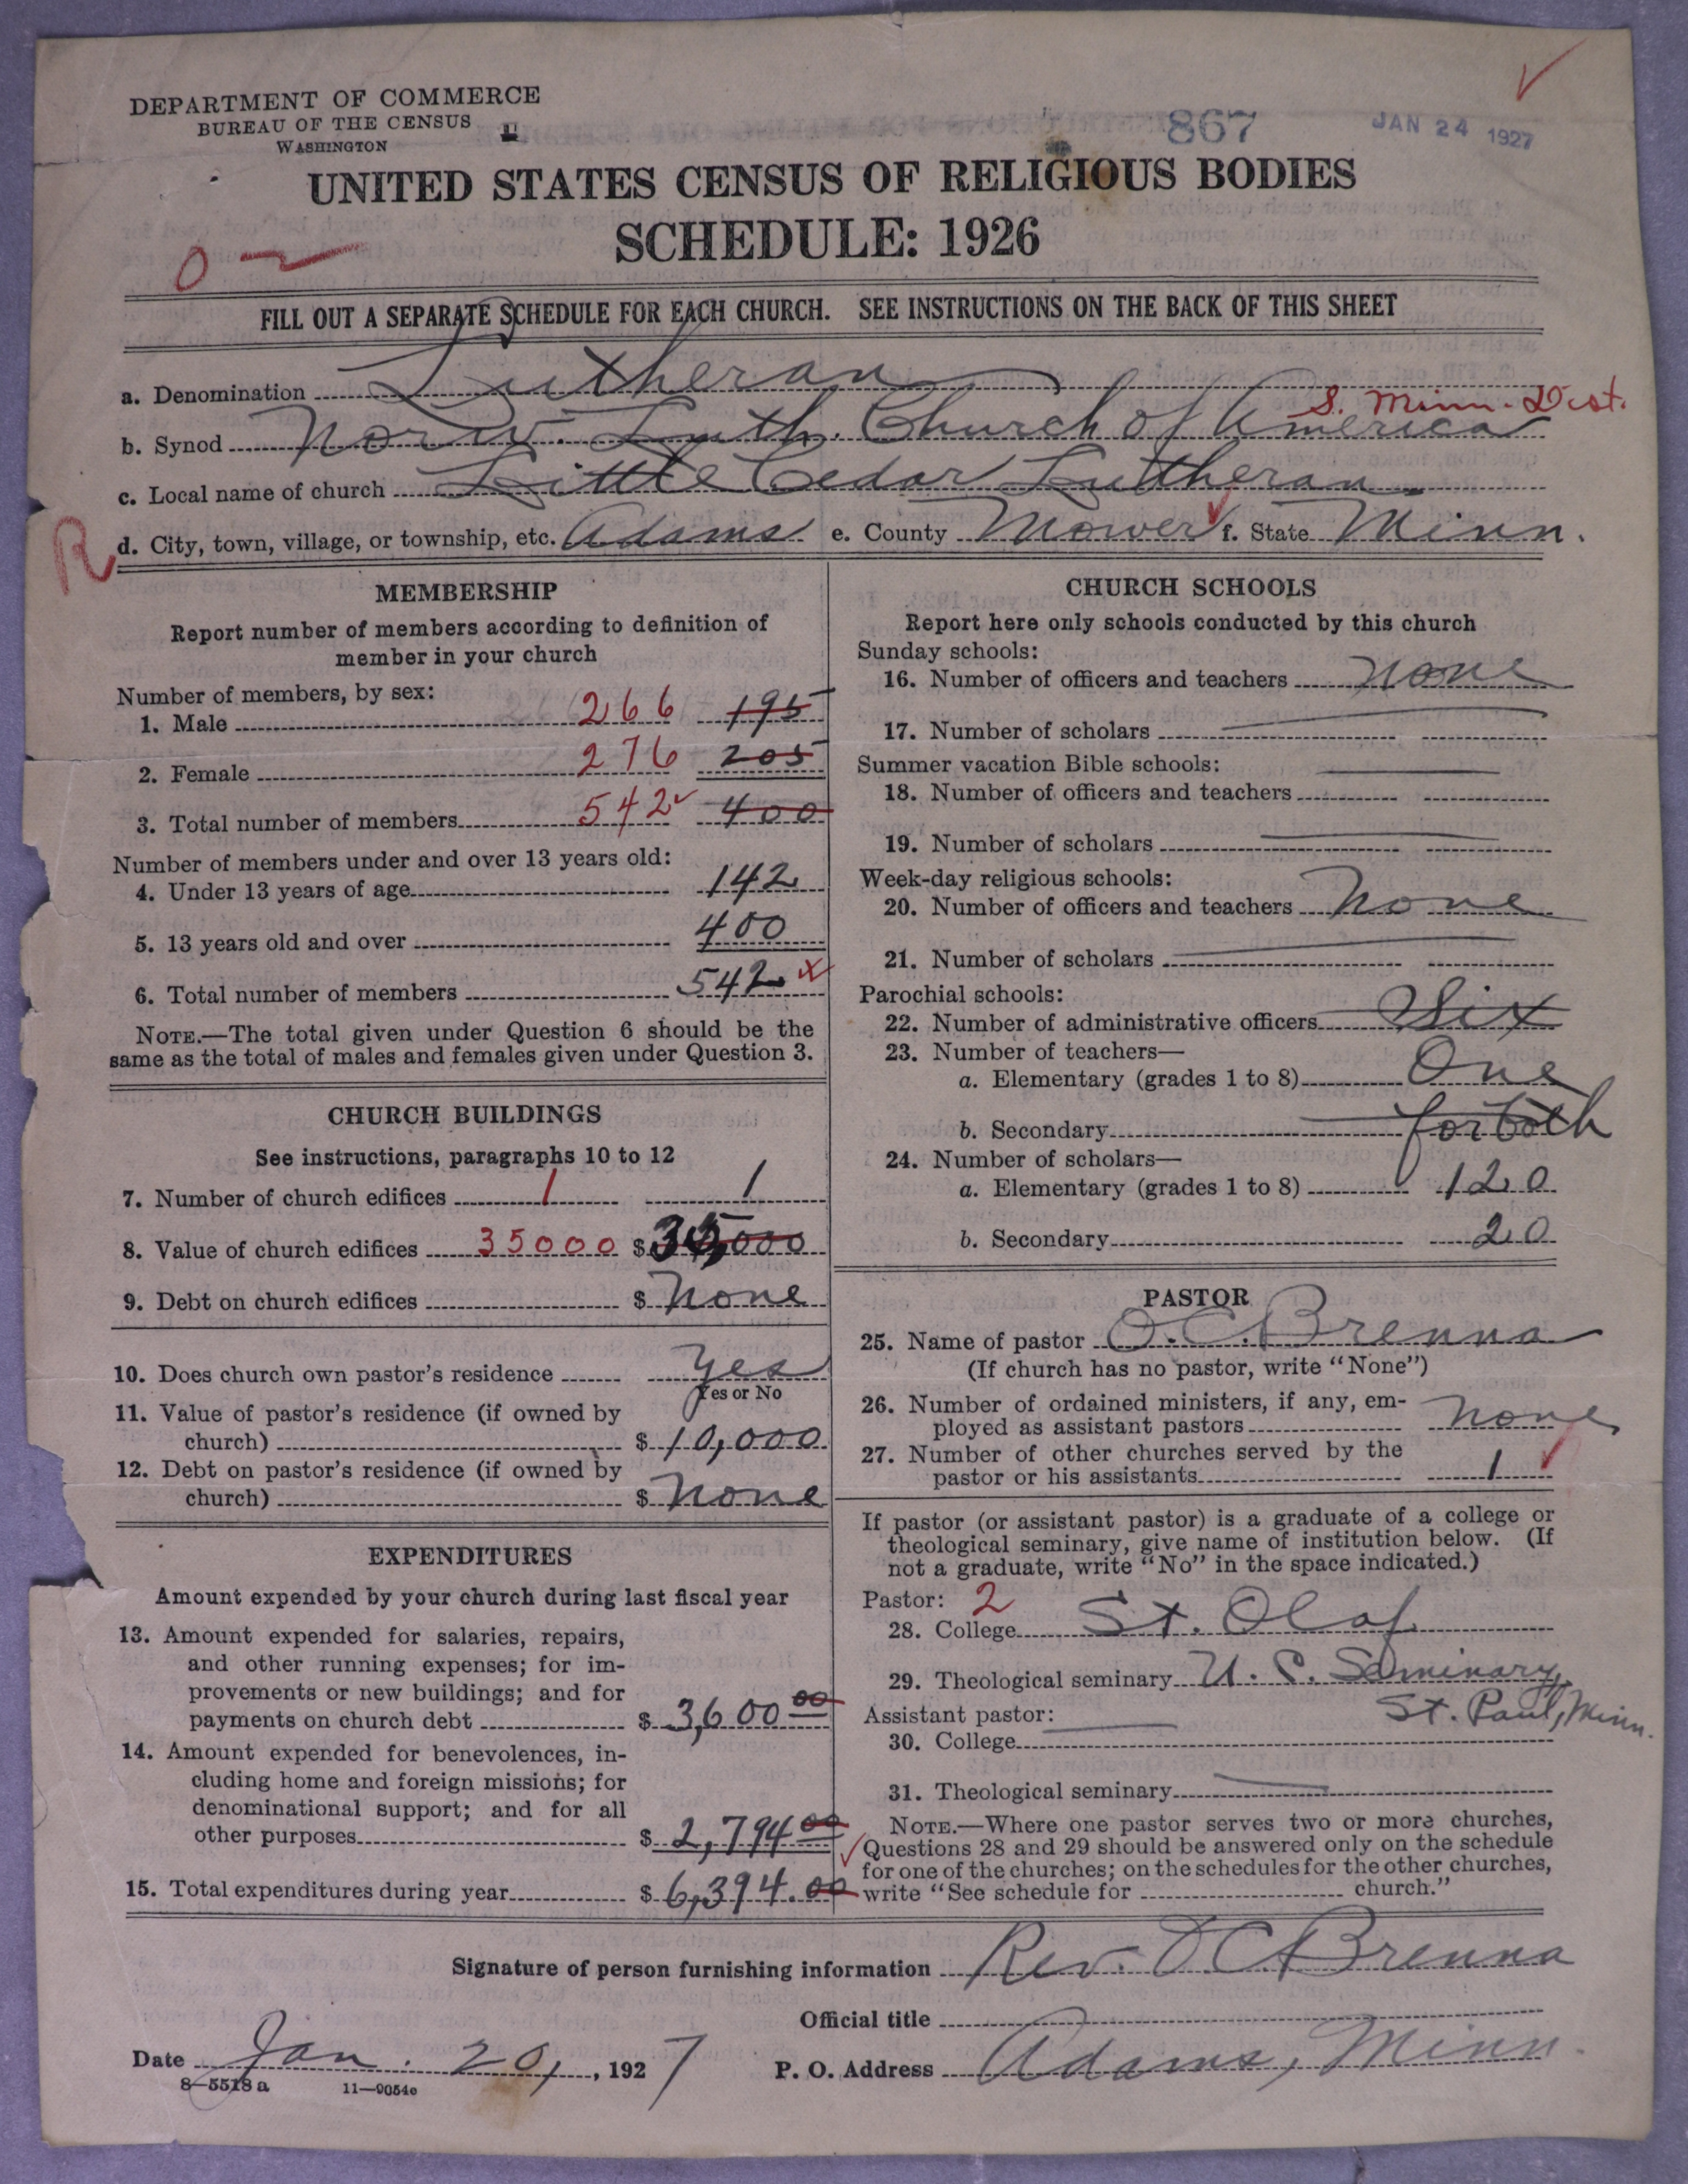 DEPARTMENT OF COMMERCE
BUREAU OF THE CENSUS
WASHINGTON
867
JAN 24 1927
UNITED STATES CENSUS OF RELIGIOUS BODIES
SCHEDULE: 1926
FILL OUT A SEPARATE SCHEDULE FOR EACH CHURCH. SEE INSTRUCTIONS ON THE BACK OF THIS SHEET
a. Denomination Lutheran
S. Minn. Dist.
b. Synod Norw. Luth. Church of America
c. Local name of church Little Cedar Lutheran
R
d. City, town, village, or township, etc. Adams e. County Mower f. State Minn.
MEMBERSHIP
Report number of members according to definition of
member in your church
Number of members, by sex:
1. Male 266 195
2. Female 276 205
3. Total number of members 542 400
Number of members under and over 13 years old:
4. Under 13 years of age 142
5. 13 years old and over 400
6. Total number of members 542
NOTE.—The total given under Question 6 should be the
same as the total of males and females given under Question 3.
CHURCH BUILDINGS
See instructions, paragraphs 10 to 12
7. Number of church edifices 1 1
8. Value of church edifices 35000 $ 35,000
9. Debt on church edifices $ None
10. Does church own pastor's residence Yes
Yes or No
11. Value of pastor's residence (if owned by
church) $ 10,000
12. Debt on pastor's residence (if owned by
church) $ None
EXPENDITURES
Amount expended by your church during last fiscal year
13. Amount expended for salaries, repairs,
and other running expenses; for im-
provements or new buildings; and for
payments on church debt $ 3,600 00
14. Amount expended for benevolences, in-
cluding home and foreign missions; for
denominational support; and for all
other purposes $ 2,794 00
15. Total expenditures during year $ 6,394.00
CHURCH SCHOOLS
Report here only schools conducted by this church
Sunday schools:
16. Number of officers and teachers None
17. Number of scholars
Summer vacation Bible schools:
18. Number of officers and teachers
19. Number of scholars
Week-day religious schools:
20. Number of officers and teachers None
21. Number of scholars
Parochial schools:
22. Number of administrative officers Six
23. Number of teachers—
a. Elementary (grades 1 to 8) One
b. Secondary for both
24. Number of scholars—
a. Elementary (grades 1 to 8) 120
b. Secondary 20
PASTOR
25. Name of pastor O. C. Brenna
(If church has no pastor, write "None")
26. Number of ordained ministers, if any, em-
ployed as assistant pastors None
27. Number of other churches served by the
pastor or his assistants 1
If pastor (or assistant pastor) is a graduate of a college or
theological seminary, give name of institution below. (If
not a graduate, write "No" in the space indicated.)
Pastor: 2
28. College St. Olaf
29. Theological seminary U. C. Seminary,
St. Paul, Minn.
Assistant pastor:
30. College
31. Theological seminary
NOTE.—Where one pastor serves two or more churches,
Questions 28 and 29 should be answered only on the schedule
for one of the churches; on the schedules for the other churches,
write "See schedule for church."
Signature of person furnishing information Rev. O C Brenna
Official title
Date Jan. 20, 1927
P. O. Address Adams, Minn.
8-5518 a
11-9054c